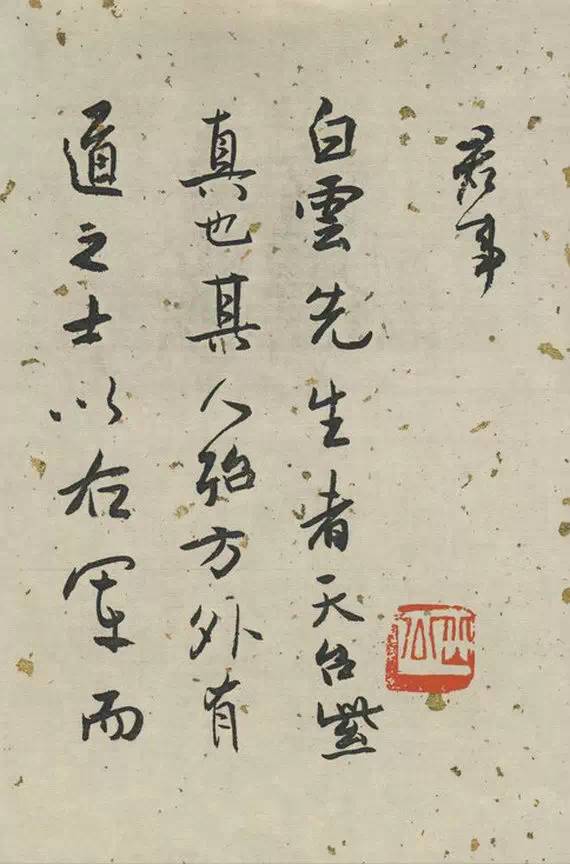 事
白雲先生者天台紫
真也其人殆方外有
道之士以右軍而